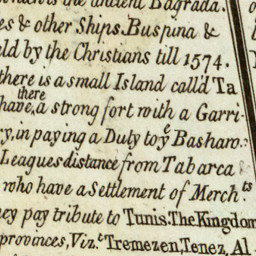 the ancient Bagrada.
es & other Ships. Buspina &
eld by the Christians till 1574.
there is a small Island call'd Ta
there
have, a strong fort with a Garri-
ry, in paying a Duty to yͤ Basharo:
Leagues distance from Tabarca
who have a Settlement of Merch.ts
ey pay tribute to Tunis. The Kingdom
provinces, Viz.t Tremezen, Tenez, Al